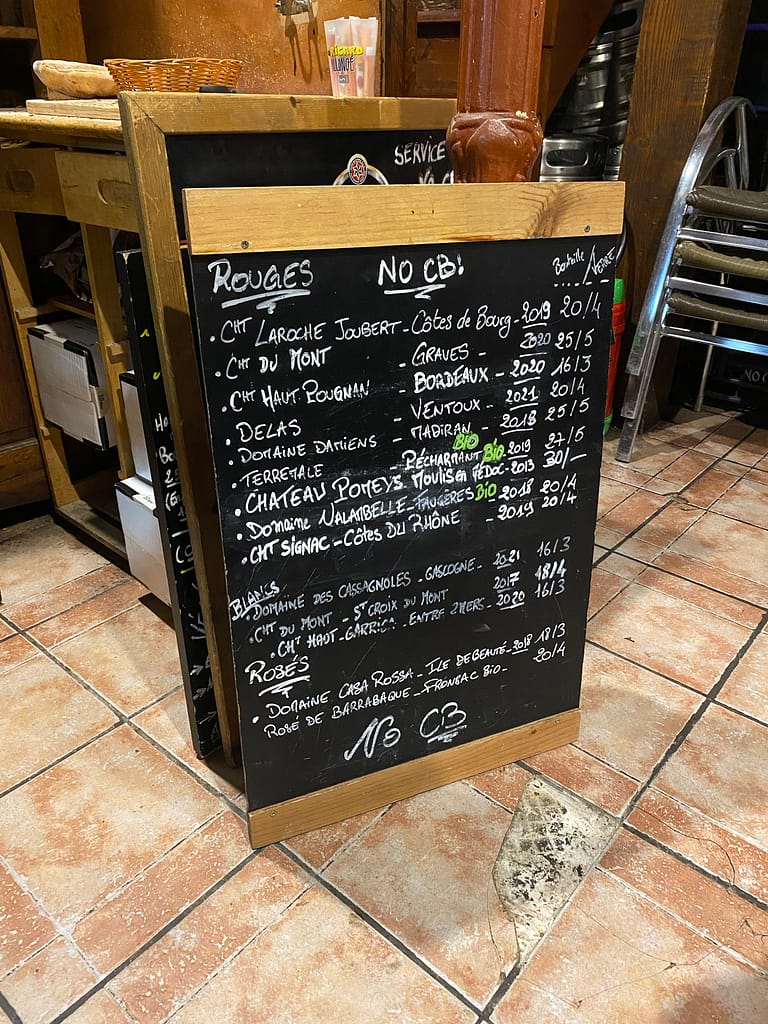 RICARD
SERVICE
ROUGES NO CB! Bouteille / VERRE
• CHT LAROCHE JOUBERT - Côtes de Bourg - 2019 20/4
• CHT DU MONT - GRAVES - 2020 25/5
• CHT HAUT POUGNAN - BORDEAUX - 2020 16/3
• DELAS - VENTOUX - 2021 20/4
• DOMAINE DAMIENS - MADIRAN - 2018 25/5
• TERREMALE PÉCHARMANT BIO BIO 2019 27/5
• CHATEAU POMEYS MOULIS en MÉDOC - 2013 30/—
• Domaine VALAMBELLE - FAUGÈRES BIO - 2018 20/4
• CHT SIGNAC - Côtes DU RHÔNE - 2019 20/4
BLANCS
• DOMAINE DES CASSAGNOLES - GASCOGNE - 2021 16/3
• CHT DU MONT - ST CROIX DU MONT 2017 18/4
• CHT HAUT-GARRIGA - ENTRE 2 MERS - 2020 16/3
ROSÉS
• DOMAINE CASA ROSSA - ILE DE BEAUTÉ - 2018 18/3
ROSÉ DE BARRABAQUE - FRONSAC BIO - 20/4
No CB